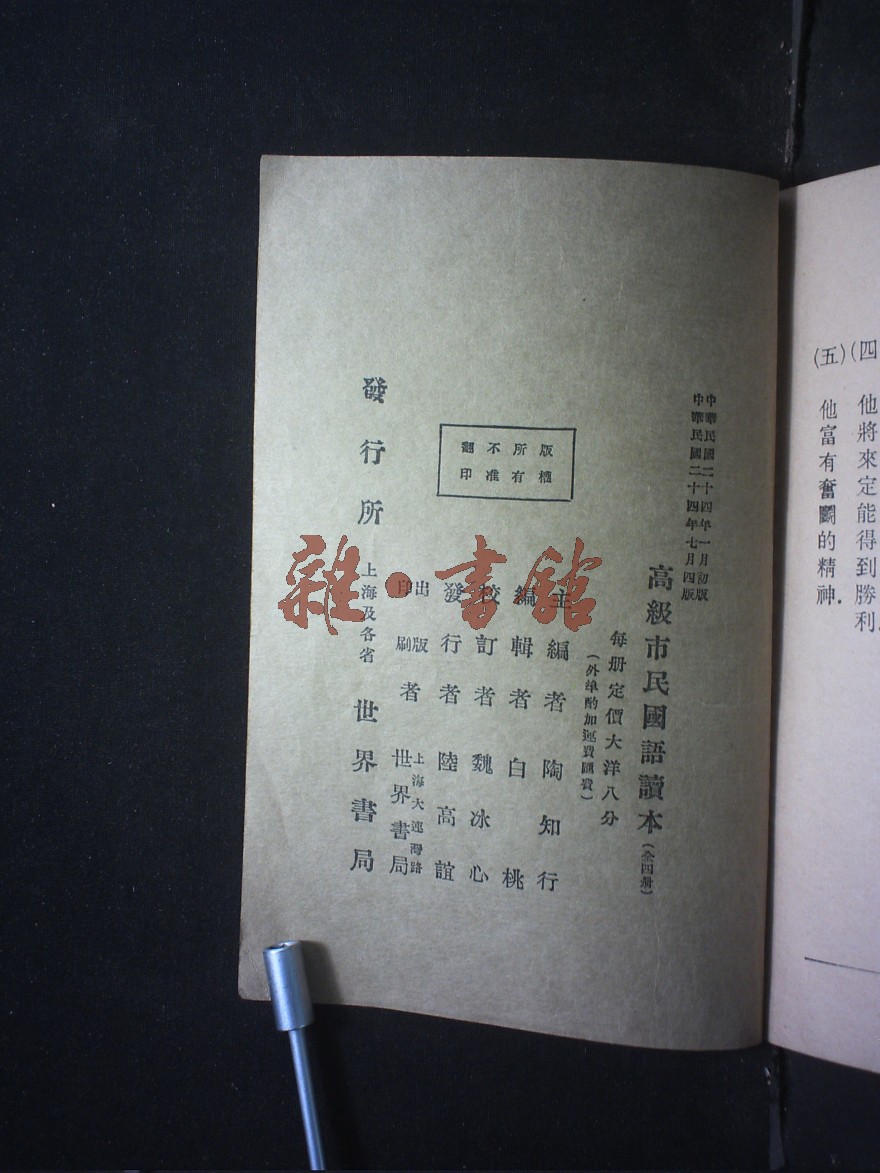 (四
他將來定能得到勝利.
(五)
他富有奮鬭的精神.
中華民國二十四年一月初版
中華民國二十四年七月四版
高級市民國語讀本(全四冊)
每册定價大洋八分
(外埠酌加運費匯費)
版權
所有
不准
翻印
主編者 陶知行
編輯者 白桃
校訂者 魏冰心
發行者 陸高誼
出版
印刷者 上海大連灣路
世界書局
發行所 上海及各省 世界書局
雜·書館